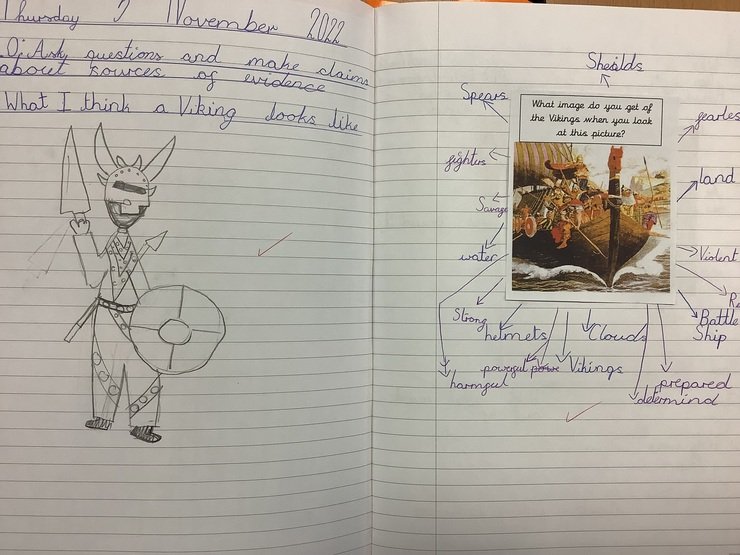 Thursday 3 November 2022
O: Ask questions and make claims
about sources of evidence
What I think a Viking looks like
Sheilds
Spears
What image do you get of
the Vikings when you look
at this picture?
fearles
fighters
land
Savage
water
Violent
Strong
helmets
Clouds
Battle
Ship
powerful
Vikings
harmful
prepared
determind